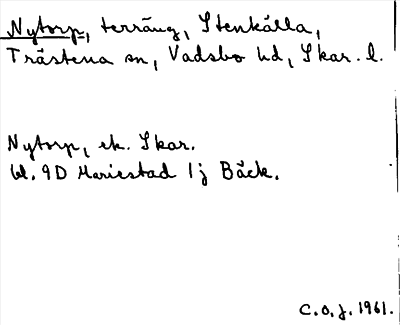 Nytorp, terräng, Stenkälla,
Trästena sn, Vadsbo hd, Skar. l.
Nytorp, ek. Skar.
bl. 9D Mariestad 1j Bäck.
C.O.J. 1961.